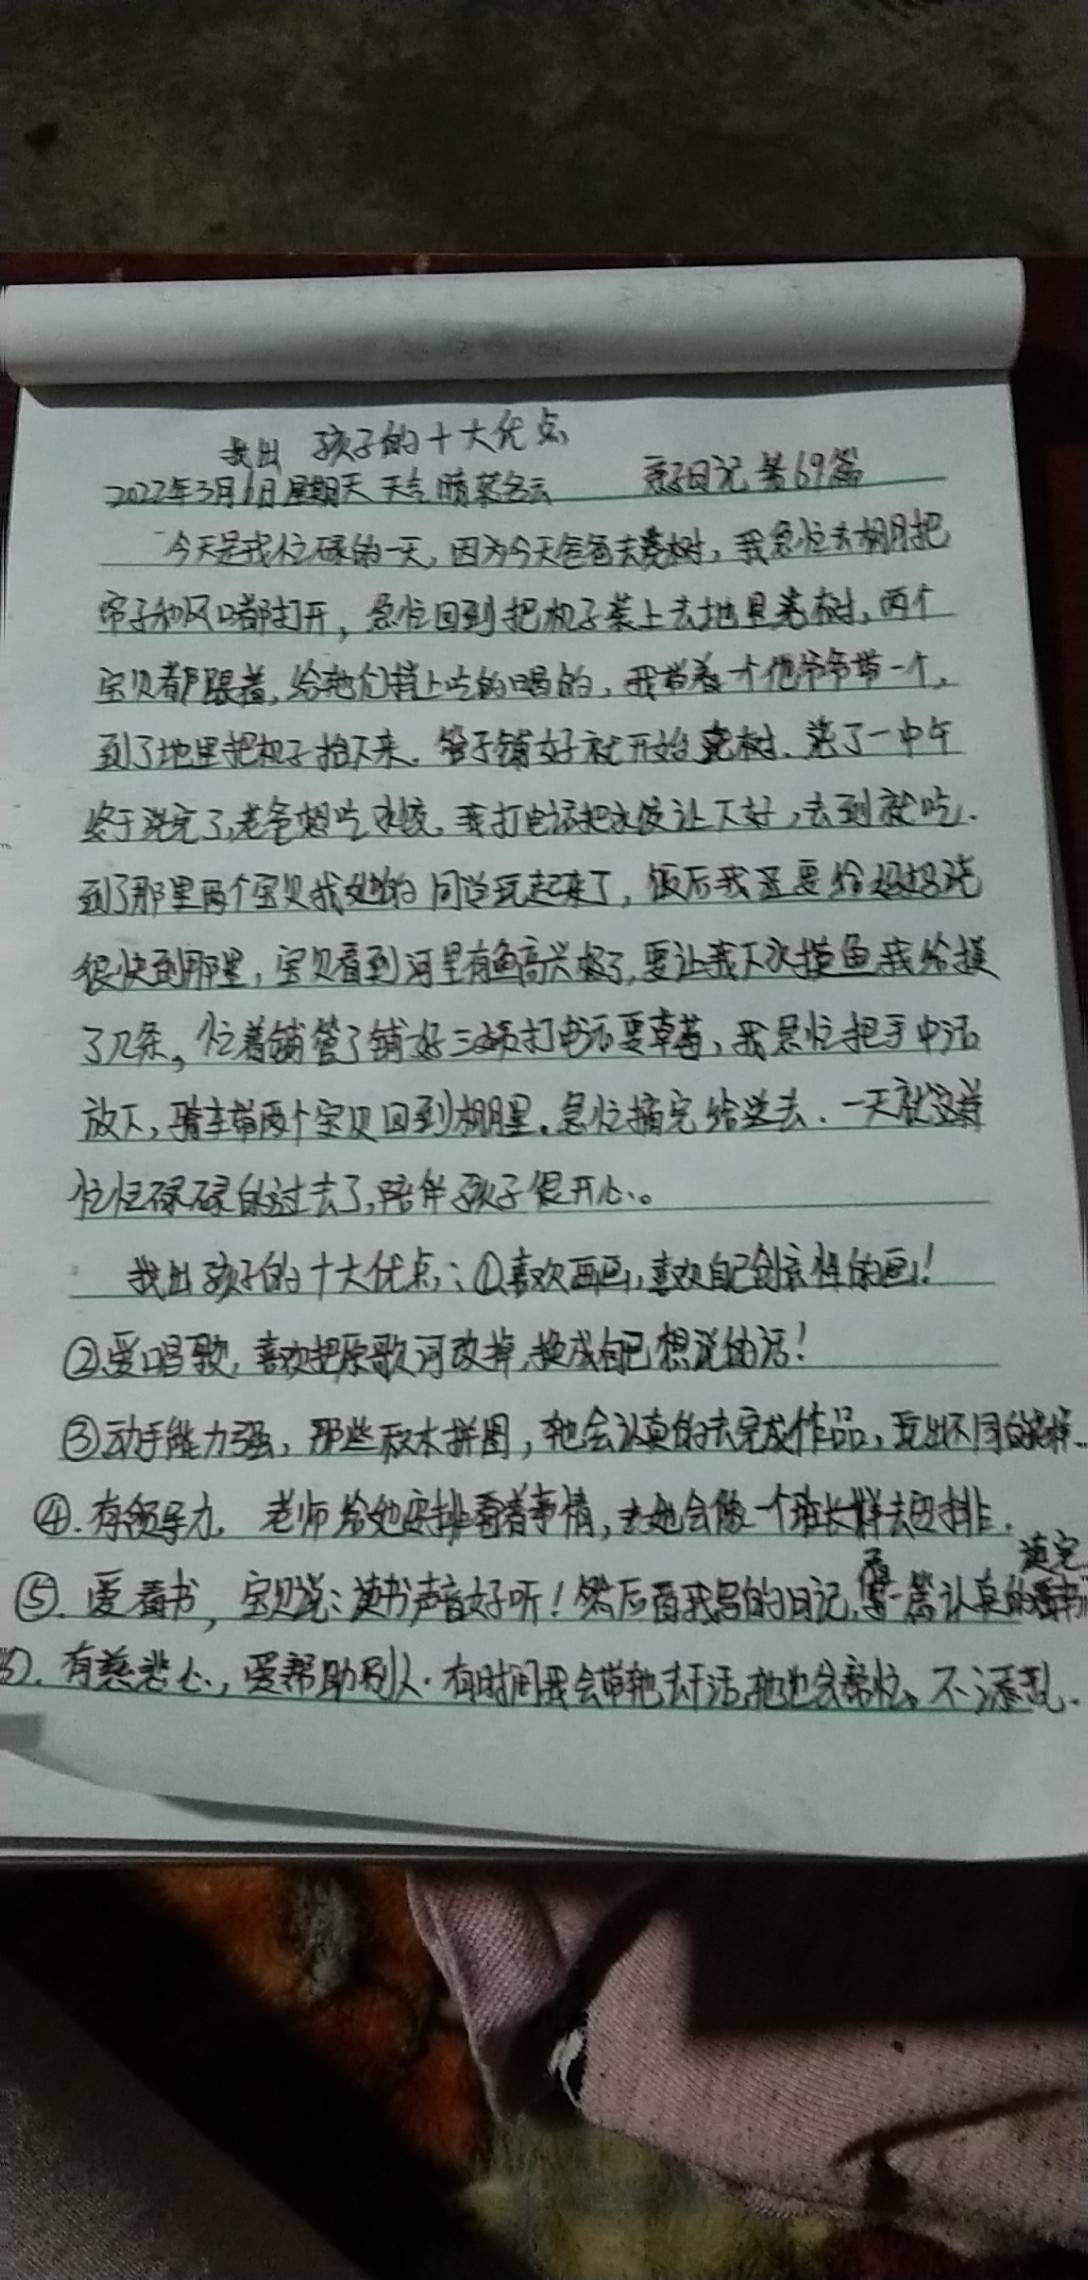 找出 孩子的十大优点
2022年3月6日星期天 天气晴 亲子日记 第69篇
今天是我忙碌的一天,因为今天爸爸去浇树,我急忙去棚月把
帘子和风口都打开,急忙回到把机子装上去地里浇树,两个
宝贝都跟着,给他们捎上吃的喝的,我带着一个他爷爷带一个,
到了地里把机子抬下来。管子铺好就开始浇树.浇了一中午
终于浇完了,老爸想吃水饺,我打电话把水饺让下好,去到就吃.
到了那里两个宝贝找她的同学玩起来了,饭后我还要给妈妈浇
很快到那里,宝贝看到河里有鱼高兴极了,要让我下水摸鱼我给摸
了几条,忙着铺管了铺好三打电话要草莓,我急忙把手中活
放下,骑车带两个宝贝回到棚里.急忙摘完给送去.一天就这样
忙忙碌碌的过去了,陪伴孩子很开心。
找出孩子的十大优点:①喜欢画画,喜欢自己创意性的画!
②爱唱歌,喜欢把原歌词改掉,换成自己想说的话!
③动手能力强,那些积木拼图,她会认真的去完成作品,玩出不同的
④.有领导力,老师给她安排看着事情,去她会像一个班长样去安排.
⑤.爱看书,宝贝说:读书声音好听!然后看我写的日记,一篇认真的看 读完
有慈悲心,爱帮助别人.有时间我会带她去干活,她也会帮忙。不添乱.